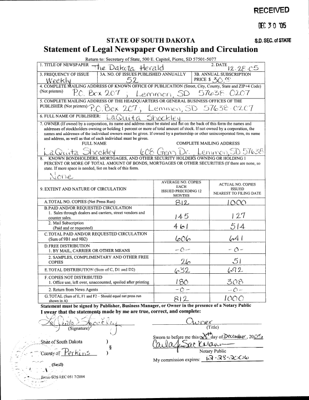 RECEIVED
DEC 30 '05
S.D. SEC. of STATE
STATE OF SOUTH DAKOTA
Statement of Legal Newspaper Ownership and Circulation
Return to: Secretary of State, 500 E. Capitol, Pierre, SD 57501-5077
1. TITLE OF NEWSPAPER The Dakota Herald
2. DATE 12 28 05
3. FREQUENCY OF ISSUE Weekly
3A. NO. OF ISSUES PUBLISHED ANNUALLY 52
3B. ANNUAL SUBSCRIPTION PRICE $ 30.00
4. COMPLETE MAILING ADDRESS OF KNOWN OFFICE OF PUBLICATION (Street, City, County, State and ZIP+4 Code)
(Not printers) P.O. Box 207, Lemmon, SD 57638-0207
5. COMPLETE MAILING ADDRESS OF THE HEADQUARTERS OR GENERAL BUSINESS OFFICES OF THE
PUBLISHER (Not printers) P.O. Box 207, Lemmon, SD 57638-0207
6. FULL NAME OF PUBLISHER: LaQuita Shockley
7. OWNER (If owned by a corporation, its name and address must be stated and also on the back of this form the names and
addresses of stockholders owning or holding 1 percent or more of total amount of stock. If not owned by a corporation, the
names and addresses of the individual owners must be given. If owned by a partnership or other unincorporated firm, its name
and address, as well as that of each individual must be given.
FULL NAME COMPLETE MAILING ADDRESS
LaQuita Shockley Dr. Lemmon, SD 57638
8. KNOWN BONDHOLDERS, MORTGAGEES, AND OTHER SECURITY HOLDERS OWNING OR HOLDING 1
PERCENT OR MORE OF TOTAL AMOUNT OF BONDS, MORTGAGES OR OTHER SECURITIES (If there are none, so
state. If more space is needed, list on back of this form.
None
9. EXTENT AND NATURE OF CIRCULATION
AVERAGE NO. COPIES EACH ISSUES PRECEDING 12 MONTHS
ACTUAL NO. COPIES ISSUES NEAREST TO FILING DATE
A. TOTAL NO. COPIES (Net Press Run) 812 1000
B. PAID AND/OR REQUESTED CIRCULATION
1. Sales through dealers and carriers, street vendors and
counter sales. 145 127
2. Mail Subscription
(Paid and or requested) 461 514
C. TOTAL PAID AND/OR REQUESTED CIRCULATION
(Sum of 9B1 and 9B2) 606 641
D. FREE DISTRIBUTION
1. BY MAIL, CARRIER OR OTHER MEANS -0- -0-
2. SAMPLES, COMPLIMENTARY AND OTHER FREE
COPIES 26 51
E. TOTAL DISTRIBUTION (Sum of C, D1 and D2) 632 692
F. COPIES NOT DISTRIBUTED
1. Office use, left over, unaccounted, spoiled after printing 180 308
2. Return from News Agents -0- -0-
G. TOTAL (Sum of E, F1 and F2 - Should equal net press run
shown in A) 812 1000
Statement must be signed by Publisher, Business Manager, or Owner in the presence of a Notary Public
I swear that the statements made by me are true, correct, and complete:
LaQuita Shockley Owner
(Signature) (Title)
State of South Dakota )
County of Perkins )
Sworn to before me this 28th day of December, 2005
Notary Public
My commission expires:
(Seal)